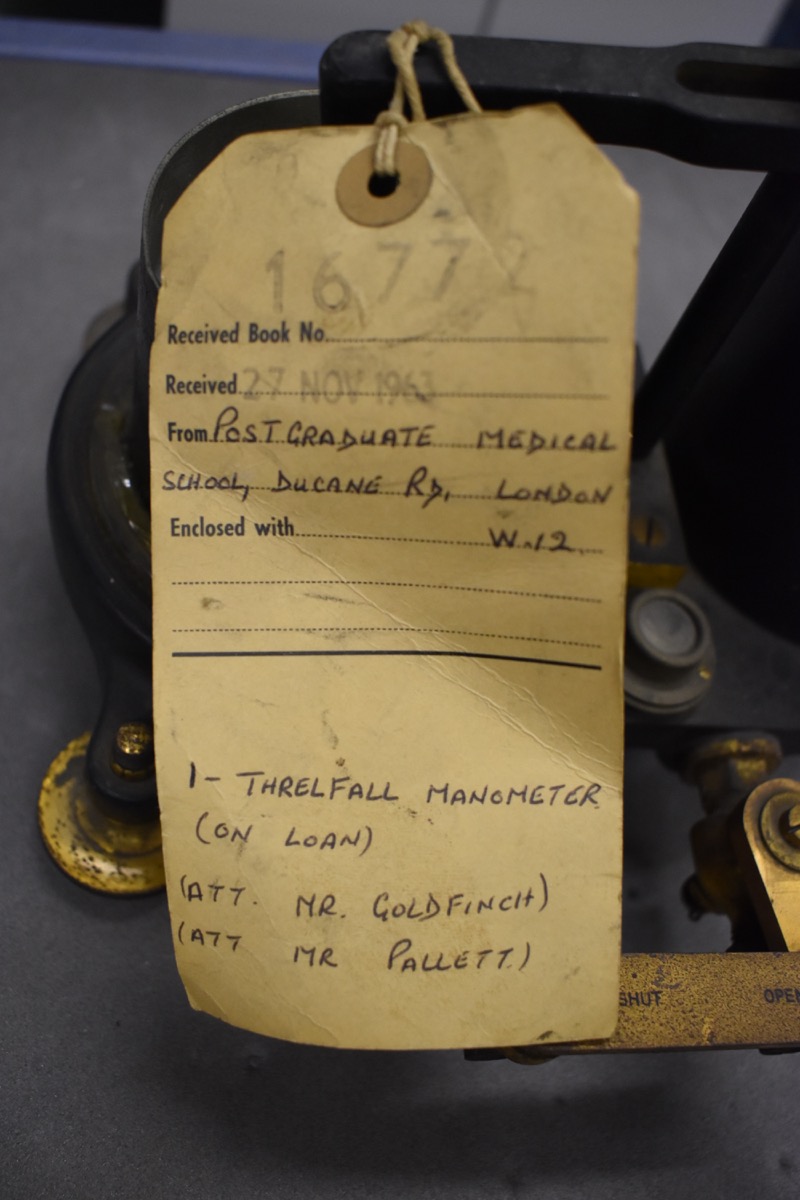 16772
Received Book No.
Received 27 NOV 1963
From POSTGRADUATE MEDICAL
SCHOOL, DUCANE RD, LONDON
Enclosed with W.12.
1- THRELFALL MANOMETER
(ON LOAN)
(ATT. MR. GOLDFINCH)
(ATT MR PALLETT.)
SHUT OPEN